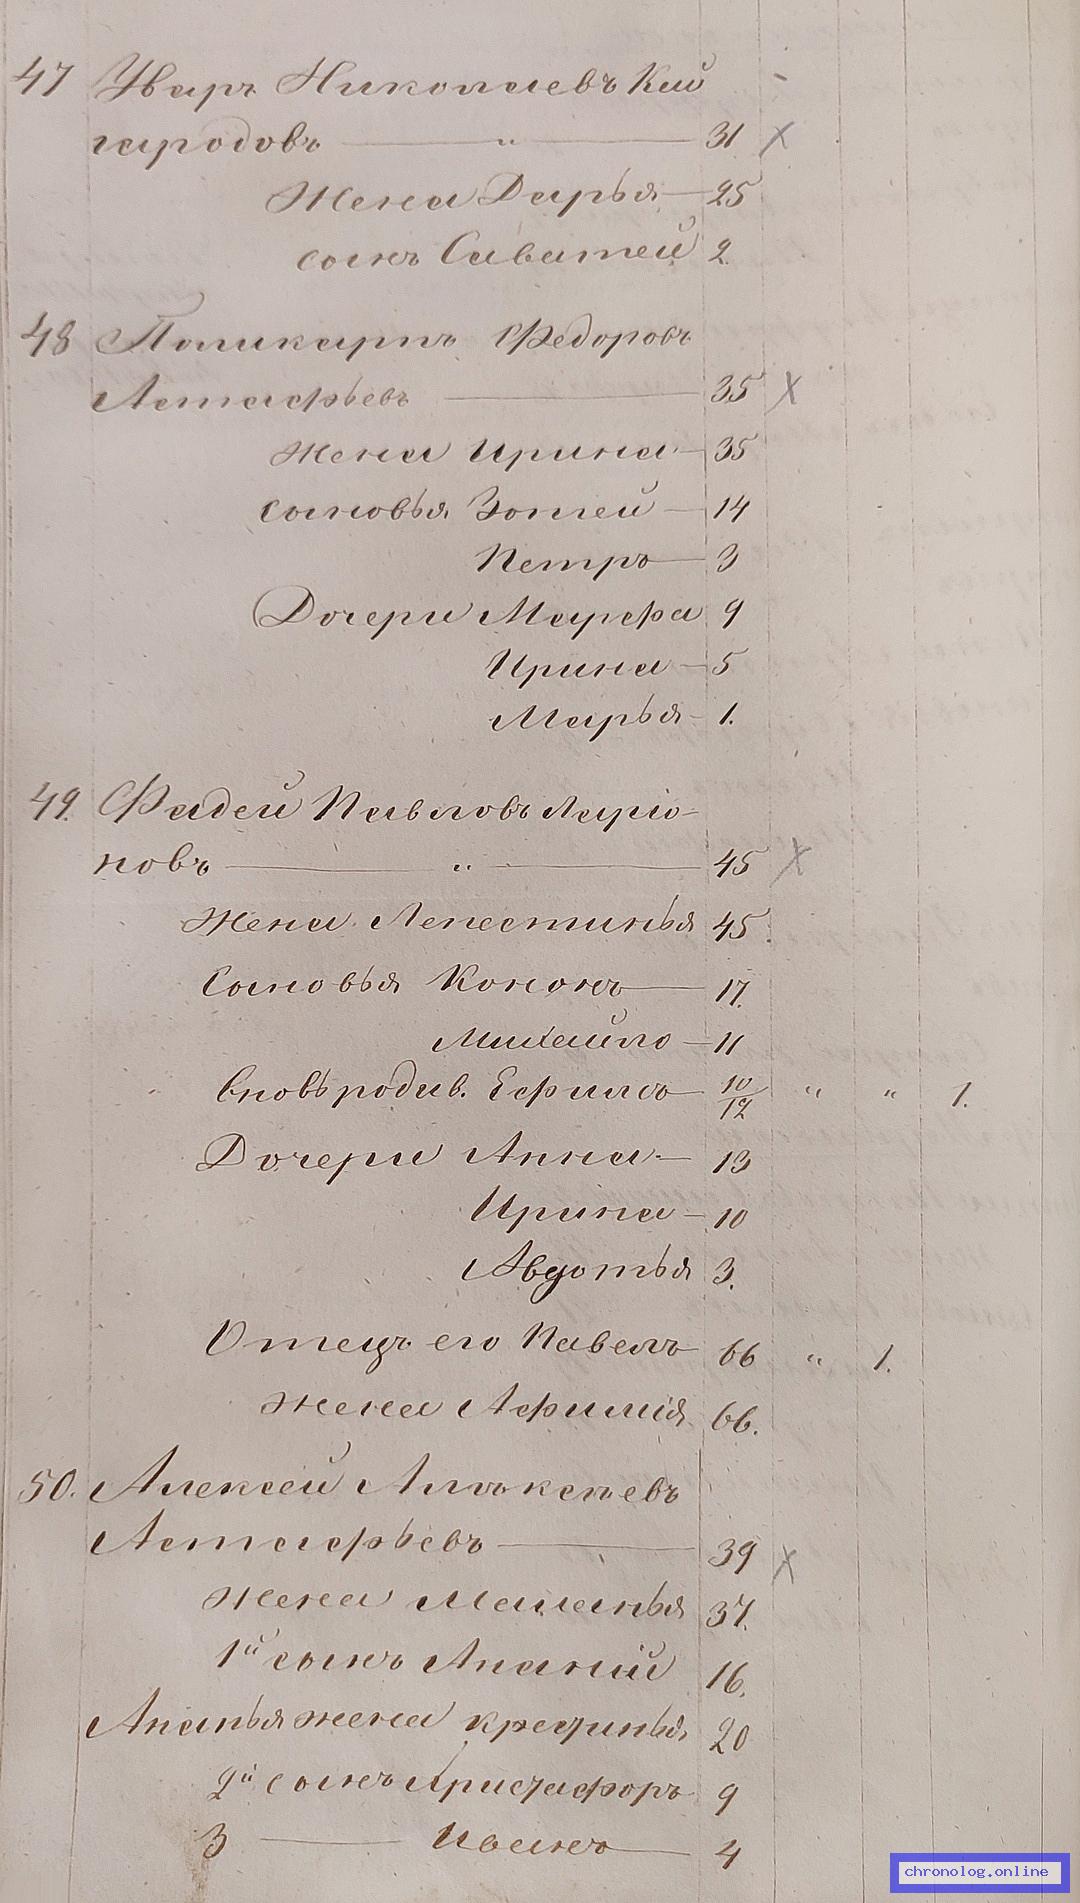 47 Уваръ Николаевъ Кай
городовъ — " — 31 х
Жена Дарья — 25
сынъ Саватей 2.
48 Поликарпъ Федоровъ
Астафьевъ — 35 х
жена Ирина — 35
сыновья Зотей — 14
Петръ — 3
Дочери Марфа 9
Ирина — 5
Марья — 1.
49. Фадей Павловъ Ларiо-
новъ — " — 45 х
Жена Лепестинья 45.
Сыновья Кононъ — 17.
Михайло — 11
вновь родив. Ефимъ — 10/12 " " 1.
Дочери Анна — 13
Ирина — 10
Авдотья 3.
Отецъ его Павелъ 66 " 1.
жена Афимiя 66.
50. Алексей Алексеевъ
Астафьевъ — 39 х
жена Маланья 37.
1й сынъ Ананiй 16.
Ананья жена 20
2й сынъ Христафоръ 9
3 — Иванъ — 4
chronolog.online